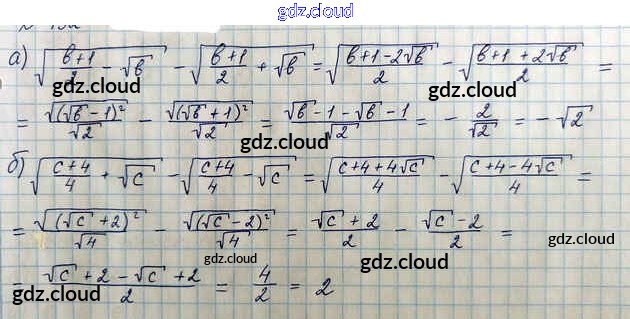 gdz.cloud
а) √((b+1)/2 - √b) - √((b+1)/2 + √b) = √((b+1-2√b)/2) - √((b+1+2√b)/2) =
gdz.cloud gdz.cloud
= √((√b-1)²)/√2 - √((√b+1)²)/√2 = (√b-1-√b-1)/√2 = -2/√2 = -√2
gdz.cloud gdz.cloud
б) √((c+4)/4 + √c) - √((c+4)/4 - √c) = √((c+4+4√c)/4) - √((c+4-4√c)/4) =
gdz.cloud gdz.cloud
= √((√c+2)²)/√4 - √((√c-2)²)/√4 = (√c+2)/2 - (√c-2)/2 =
gdz.cloud gdz.cloud gdz.cloud
= (√c+2-√c+2)/2 = 4/2 = 2
gdz.cloud